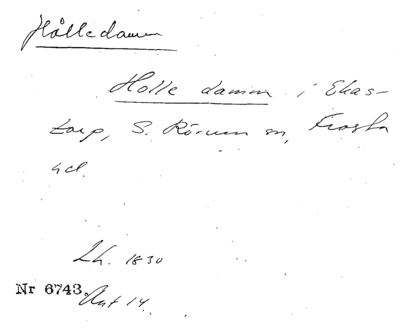 Hålledamm
Holle damm i Ekas-
torp, S. Rörum sn, Frosta
hd.
Lh. 1830
Nr 6743. Ant 14.